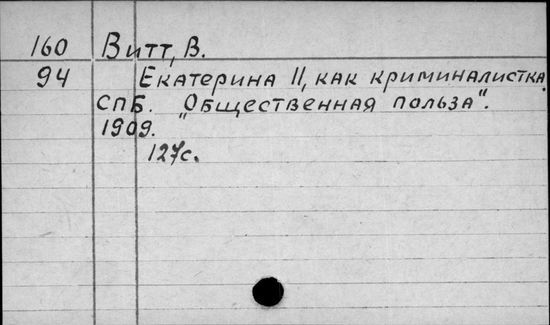 160 Витт, В.
94 Екатерина II, как криминалистка.
СПБ. "Общественная польза".
1909.
127с.